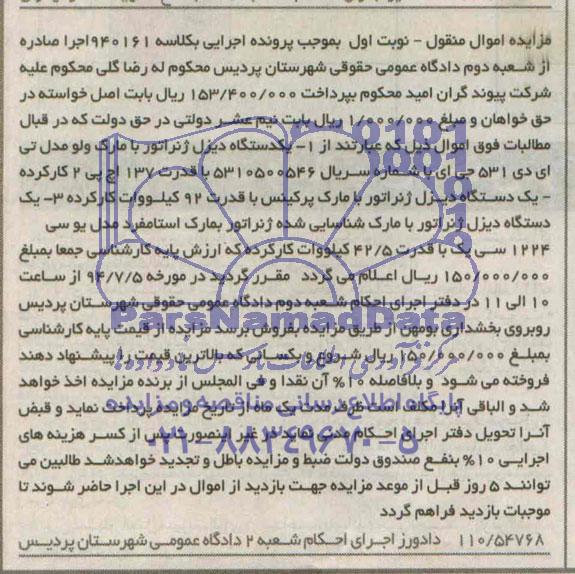 مزایده اموال منقول - نوبت اول بموجب پرونده اجرایی بکلاسه ۹۴۰۱۶۱ اجرا صادره
از شعبه دوم دادگاه عمومی حقوقی شهرستان پردیس محکوم له رضا گلی محکوم علیه
شرکت پیوند گران امید محکوم بپرداخت ۱۵۳/۴۰۰/۰۰۰ ریال بابت اصل خواسته در
حق خواهان و مبلغ ۱/۰۰۰/۰۰۰ ریال بابت نیم عشر دولتی در حق دولت که در قبال
مطالبات فوق اموال ذیل که عبارتند از ۱- یکدستگاه دیزل ژنراتور با مارک ولو مدل تی
ای دی ۵۳۱ جی ای با شماره سریال ۵۳۱۰۵۰۰۵۴۶ با قدرت ۱۳۷ اچ پی ۲ کارکرده
- یک دستگاه دیزل ژنراتور با مارک پرکینس با قدرت ۹۲ کیلووات کارکرده ۳- یک
دستگاه دیزل ژنراتور با مارک شناسایی شده ژنراتور بمارک استامفرد مدل یو سی
۱۲۲۴ سی یک با قدرت ۴۲/۵ کیلووات کارکرده که ارزش پایه کارشناسی جمعا بمبلغ
۱۵۰/۰۰۰/۰۰۰ ریال اعلام می گردد مقرر گردید در مورخه ۹۴/۷/۵ از ساعت
۱۰ الی ۱۱ در دفتر اجرای احکام شعبه دوم دادگاه عمومی حقوقی شهرستان پردیس
روبروی بخشداری بومهن از طریق مزایده بفروش برسد مزایده از قیمت پایه کارشناسی
بمبلغ ۱۵۰/۰۰۰/۰۰۰ ریال شروع و بکسانی که بالاترین قیمت را پیشنهاد دهند
فروخته می شود و بلافاصله ۱۰% آن نقدا و فی المجلس از برنده مزایده اخذ خواهد
شد و الباقی آنرا مکلف است ظرف مدت یک ماه از تاریخ مزایده پرداخت نماید و قبض
آنرا تحویل دفتر اجرای احکام مدنی نماید در غیر اینصورت پس از کسر هزینه های
اجرایی ۱۰% بنفع صندوق دولت ضبط و مزایده باطل و تجدید خواهدشد طالبین می
توانند ۵ روز قبل از موعد مزایده جهت بازدید از اموال در این اجرا حاضر شوند تا
موجبات بازدید فراهم گردد
۱۱۰/۵۴۷۶۸ دادورز اجرای احکام شعبه ۲ دادگاه عمومی شهرستان پردیس
ParsNamadData
پایگاه اطلاع رسانی مناقصه و مزایده
۰۲۱-۸۸۳۴۹۶۷۰-۵